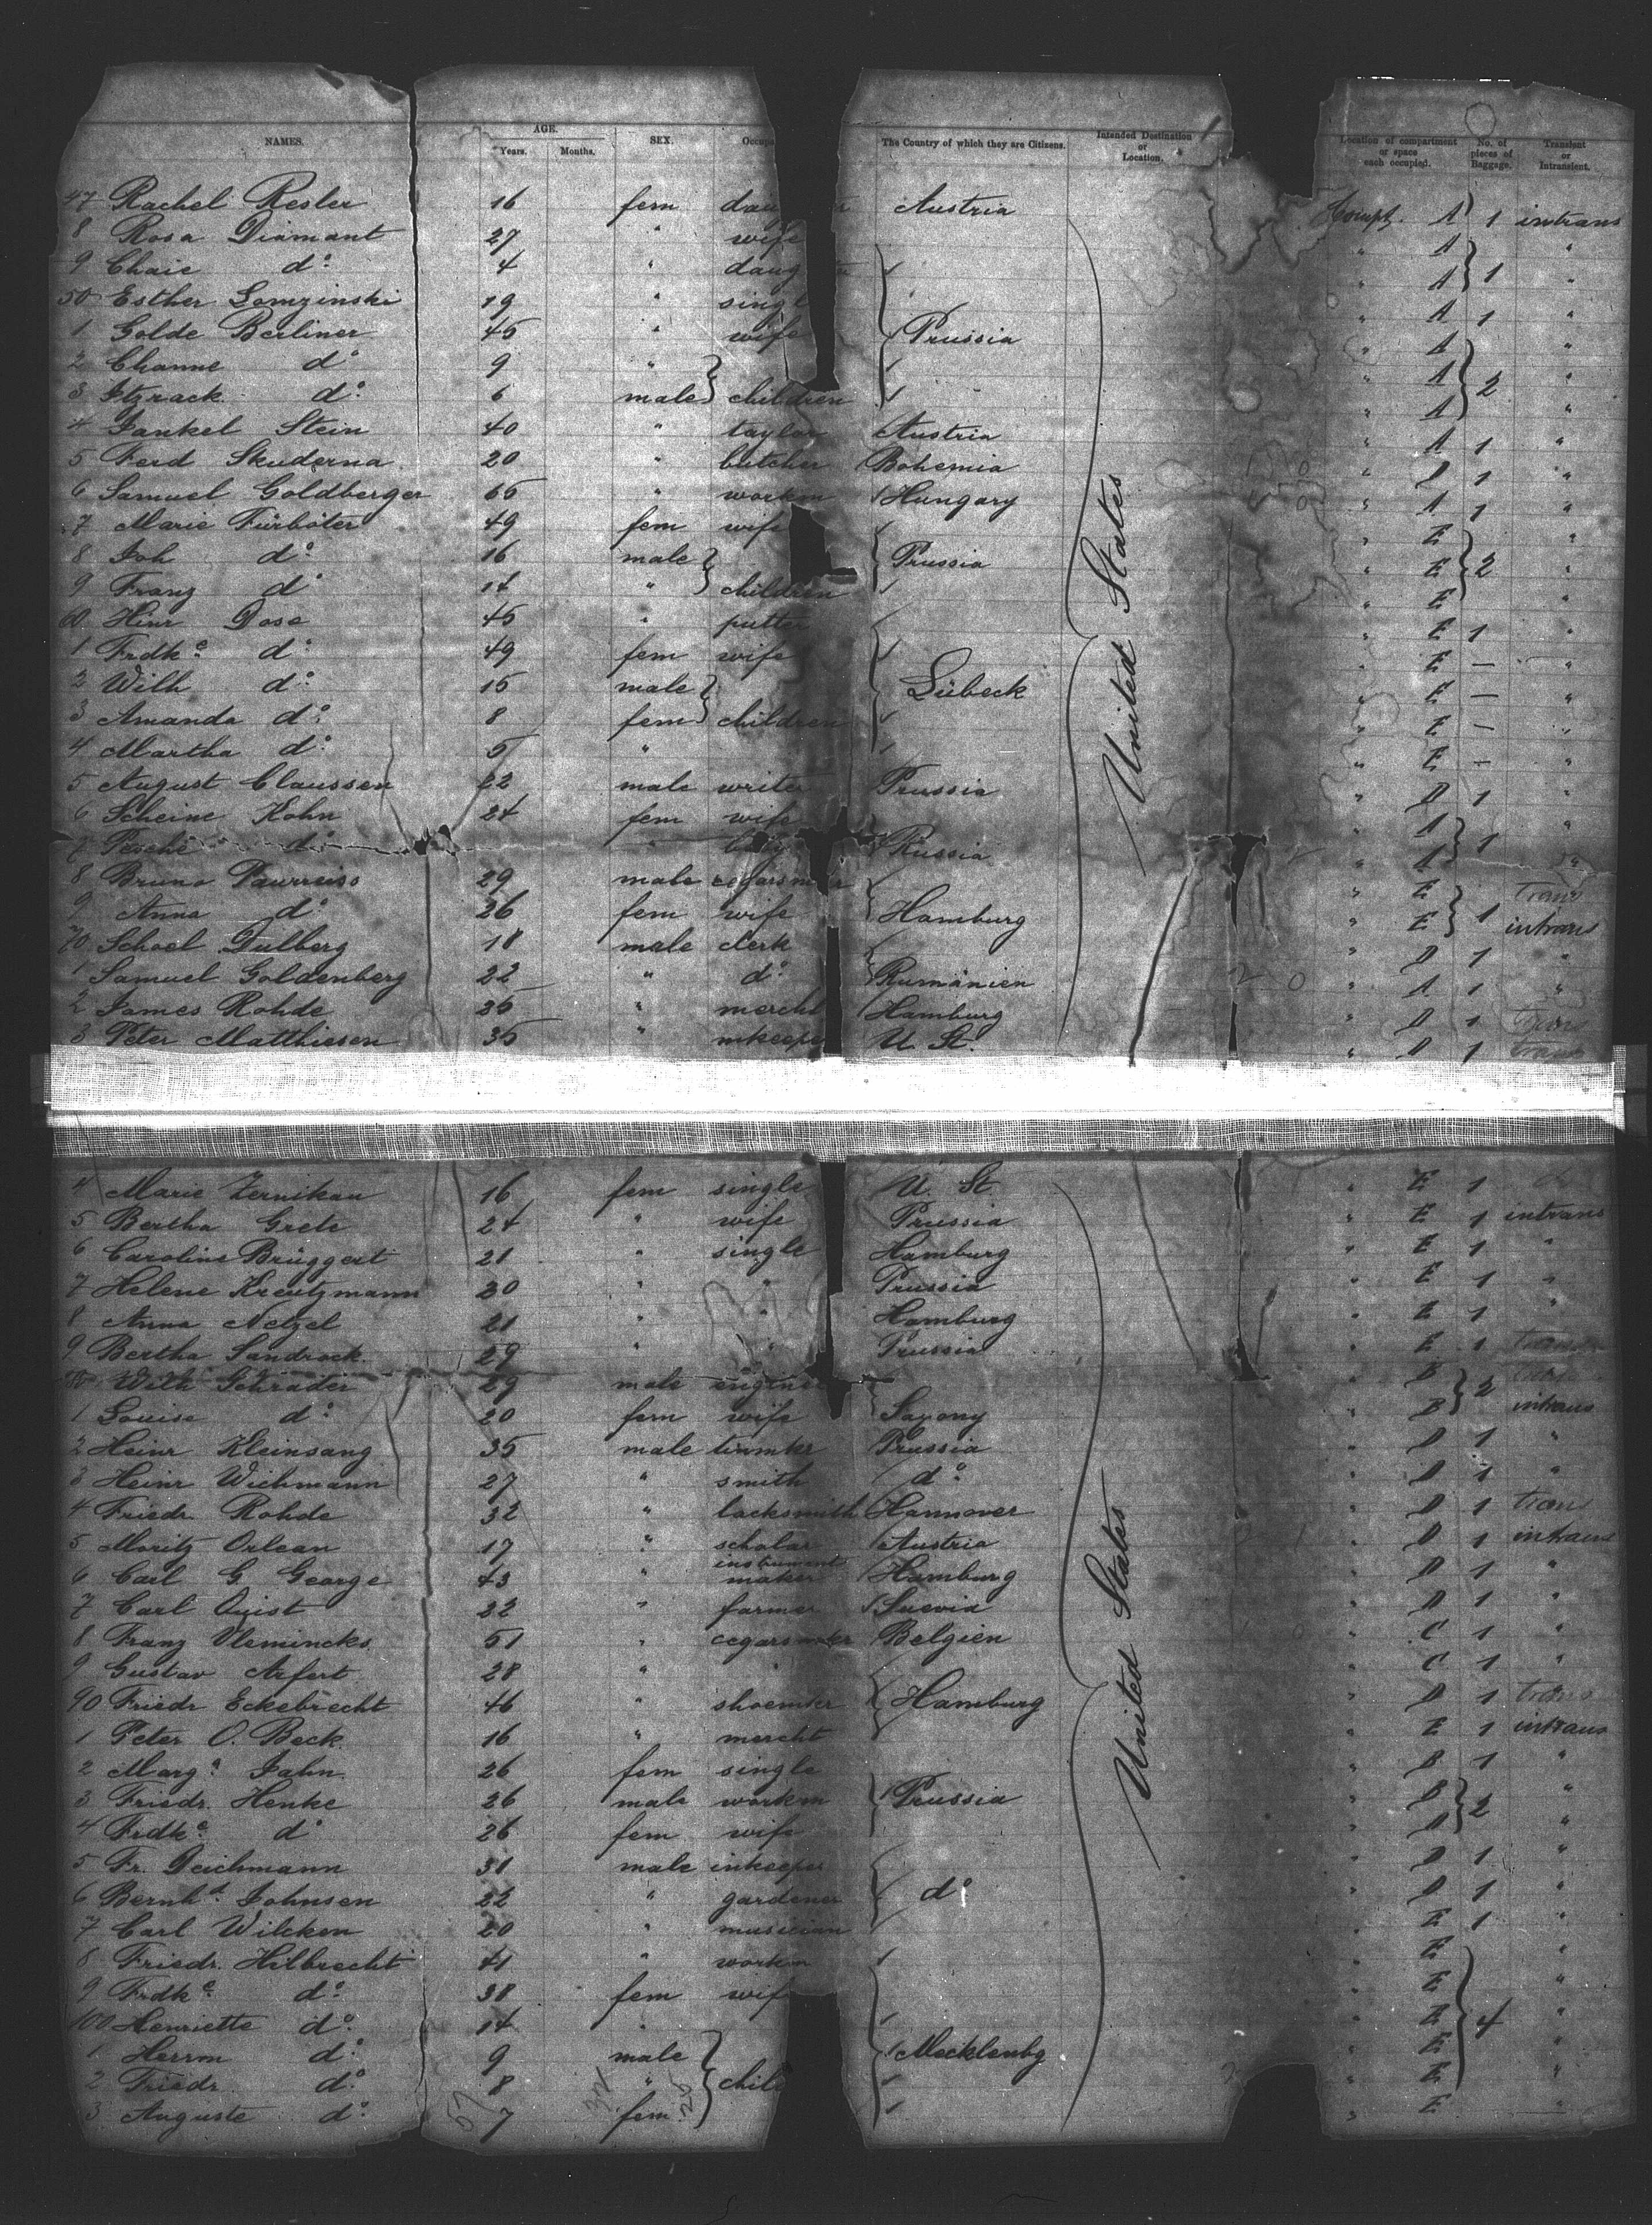 NAMES. AGE. Years. Months. SEX. Occupa The Country of which they are Citizens. Intended Destination or Location. Location of compartment or space each occupied. No. of pieces of Baggage. Transient or Intransient.
47 Rachel Resler 16 fem daug Austria Compt. A 1 intrans
8 Rosa Diamant 27 " wife " A "
9 Chaie do. 4 " daug " A 1 "
50 Esther Lomzinski 19 " singl " A 1 "
1 Golde Berliner 45 " wife Prussia " A "
2 Channe do 9 " " A 2 "
3 Itzrack do. 6 male children " A "
4 Jankel Stein 40 " taylor Austria " A 1 "
5 Ferd Skuderna 20 " butcher Bohemia " D 1 "
6 Samuel Goldberger 65 " workm Hungary " A 1 "
7 Marie Fürböter 49 fem wife " E "
8 Joh do. 16 male Prussia " E 2 "
9 Franz do 14 " children " E "
60 Hinr Dose 45 " putter " E 1 "
1 Frdke. do. 49 fem wife " E — "
2 Wilh do. 15 male Lübeck " E — "
3 Amanda do. 8 fem children " E — "
4 Martha do. 5 " " E — "
5 August Claussen 22 male writer Prussia " D 1 "
6 Scheine Kohn 24 fem wife " A "
7 Pesche do " Russia " A 1 "
8 Bruno 29 male cegarsmkr " E trans
9 Anna do. 26 fem wife Hamburg " E 1 intrans
70 Schoel Dulberg 18 male clerk " D 1 "
1 Samuel Goldenberg 22 " do. Rumänien " A 1 "
2 James Rohde 35 " mercht Hamburg " D 1 trans
3 Peter Matthiesen 35 " inkeeper U. St. " D 1 trans
United States
4 Marie Zernikau 16 fem single U. St. " E 1
5 Bertha Grete 24 " wife Prussia " E 1 intrans
6 Caroline Brüggert 21 " single Hamburg " E 1 "
7 Helene Kreutzmann 30 " " Prussia " E 1 "
8 Anna Netzel 21 " " Hamburg " E 1 "
9 Bertha Sandrock 29 " " Prussia " E 1 trans
80 Wilh Schrader 29 male enginee " B trans
1 Louise do. 20 fem wife Saxony " B 2 intrans
2 Heinr Kleinsang 35 male tinmkr Prussia " D 1 "
3 Heinr Wichmann 27 " smith do. " D 1 "
4 Friedr. Rohde 32 " locksmith Hannover " D 1 trans
5 Moritz Orlean 17 " scholar Austria " D 1 intrans
6 Carl G. George 43 " instrument maker Hamburg " D 1 "
7 Carl Quist 32 " farmer Suevia " D 1 "
8 Franz Vlemincks 51 " cegarsmkr Belgien " C 1 "
9 Gustav Arfert 28 " " " C 1 "
90 Friedr Eckebrecht 46 " shoemkr Hamburg " D 1 trans
1 Peter O. Beck 16 " mercht " E 1 intrans
2 Marga. Jahn 26 fem single " B 1 "
3 Friedr. Henke 26 male workm Prussia " B 2 "
4 Frdke. do 26 fem wife " B "
5 Fr. Deichmann 31 male inkeeper " D 1 "
6 Bernhd. Johnsen 22 " gardener do. " D 1 "
7 Carl Wilcken 20 " musician " E 1 "
8 Friedr. Hilbrecht 41 " workm " E "
9 Frdke. do. 38 fem wife " E "
100 Henriette do. 14 " " E 4 "
1 Herrm do. 9 male Mecklenbg " E "
2 Friedr. do. 8 " child " E "
3 Auguste do. 7 fem " E "
United States